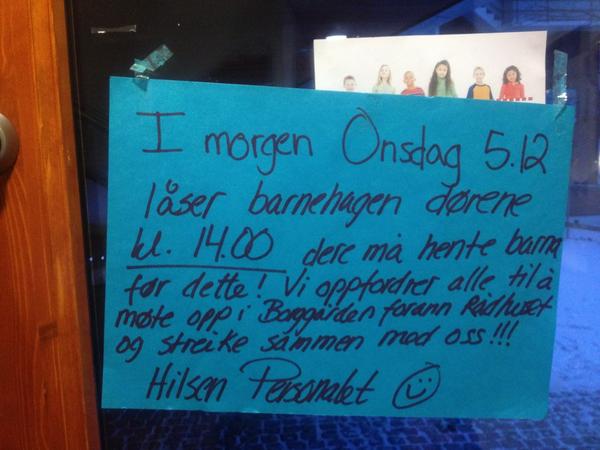 I morgen Onsdag 5.12
låser barnehagen dørene
kl. 14.00 dere må hente barna
før dette! Vi oppfordrer alle til å
møte opp i Borggården forann Rådhuset
og streike sammen med oss!!!
Hilsen Personalet